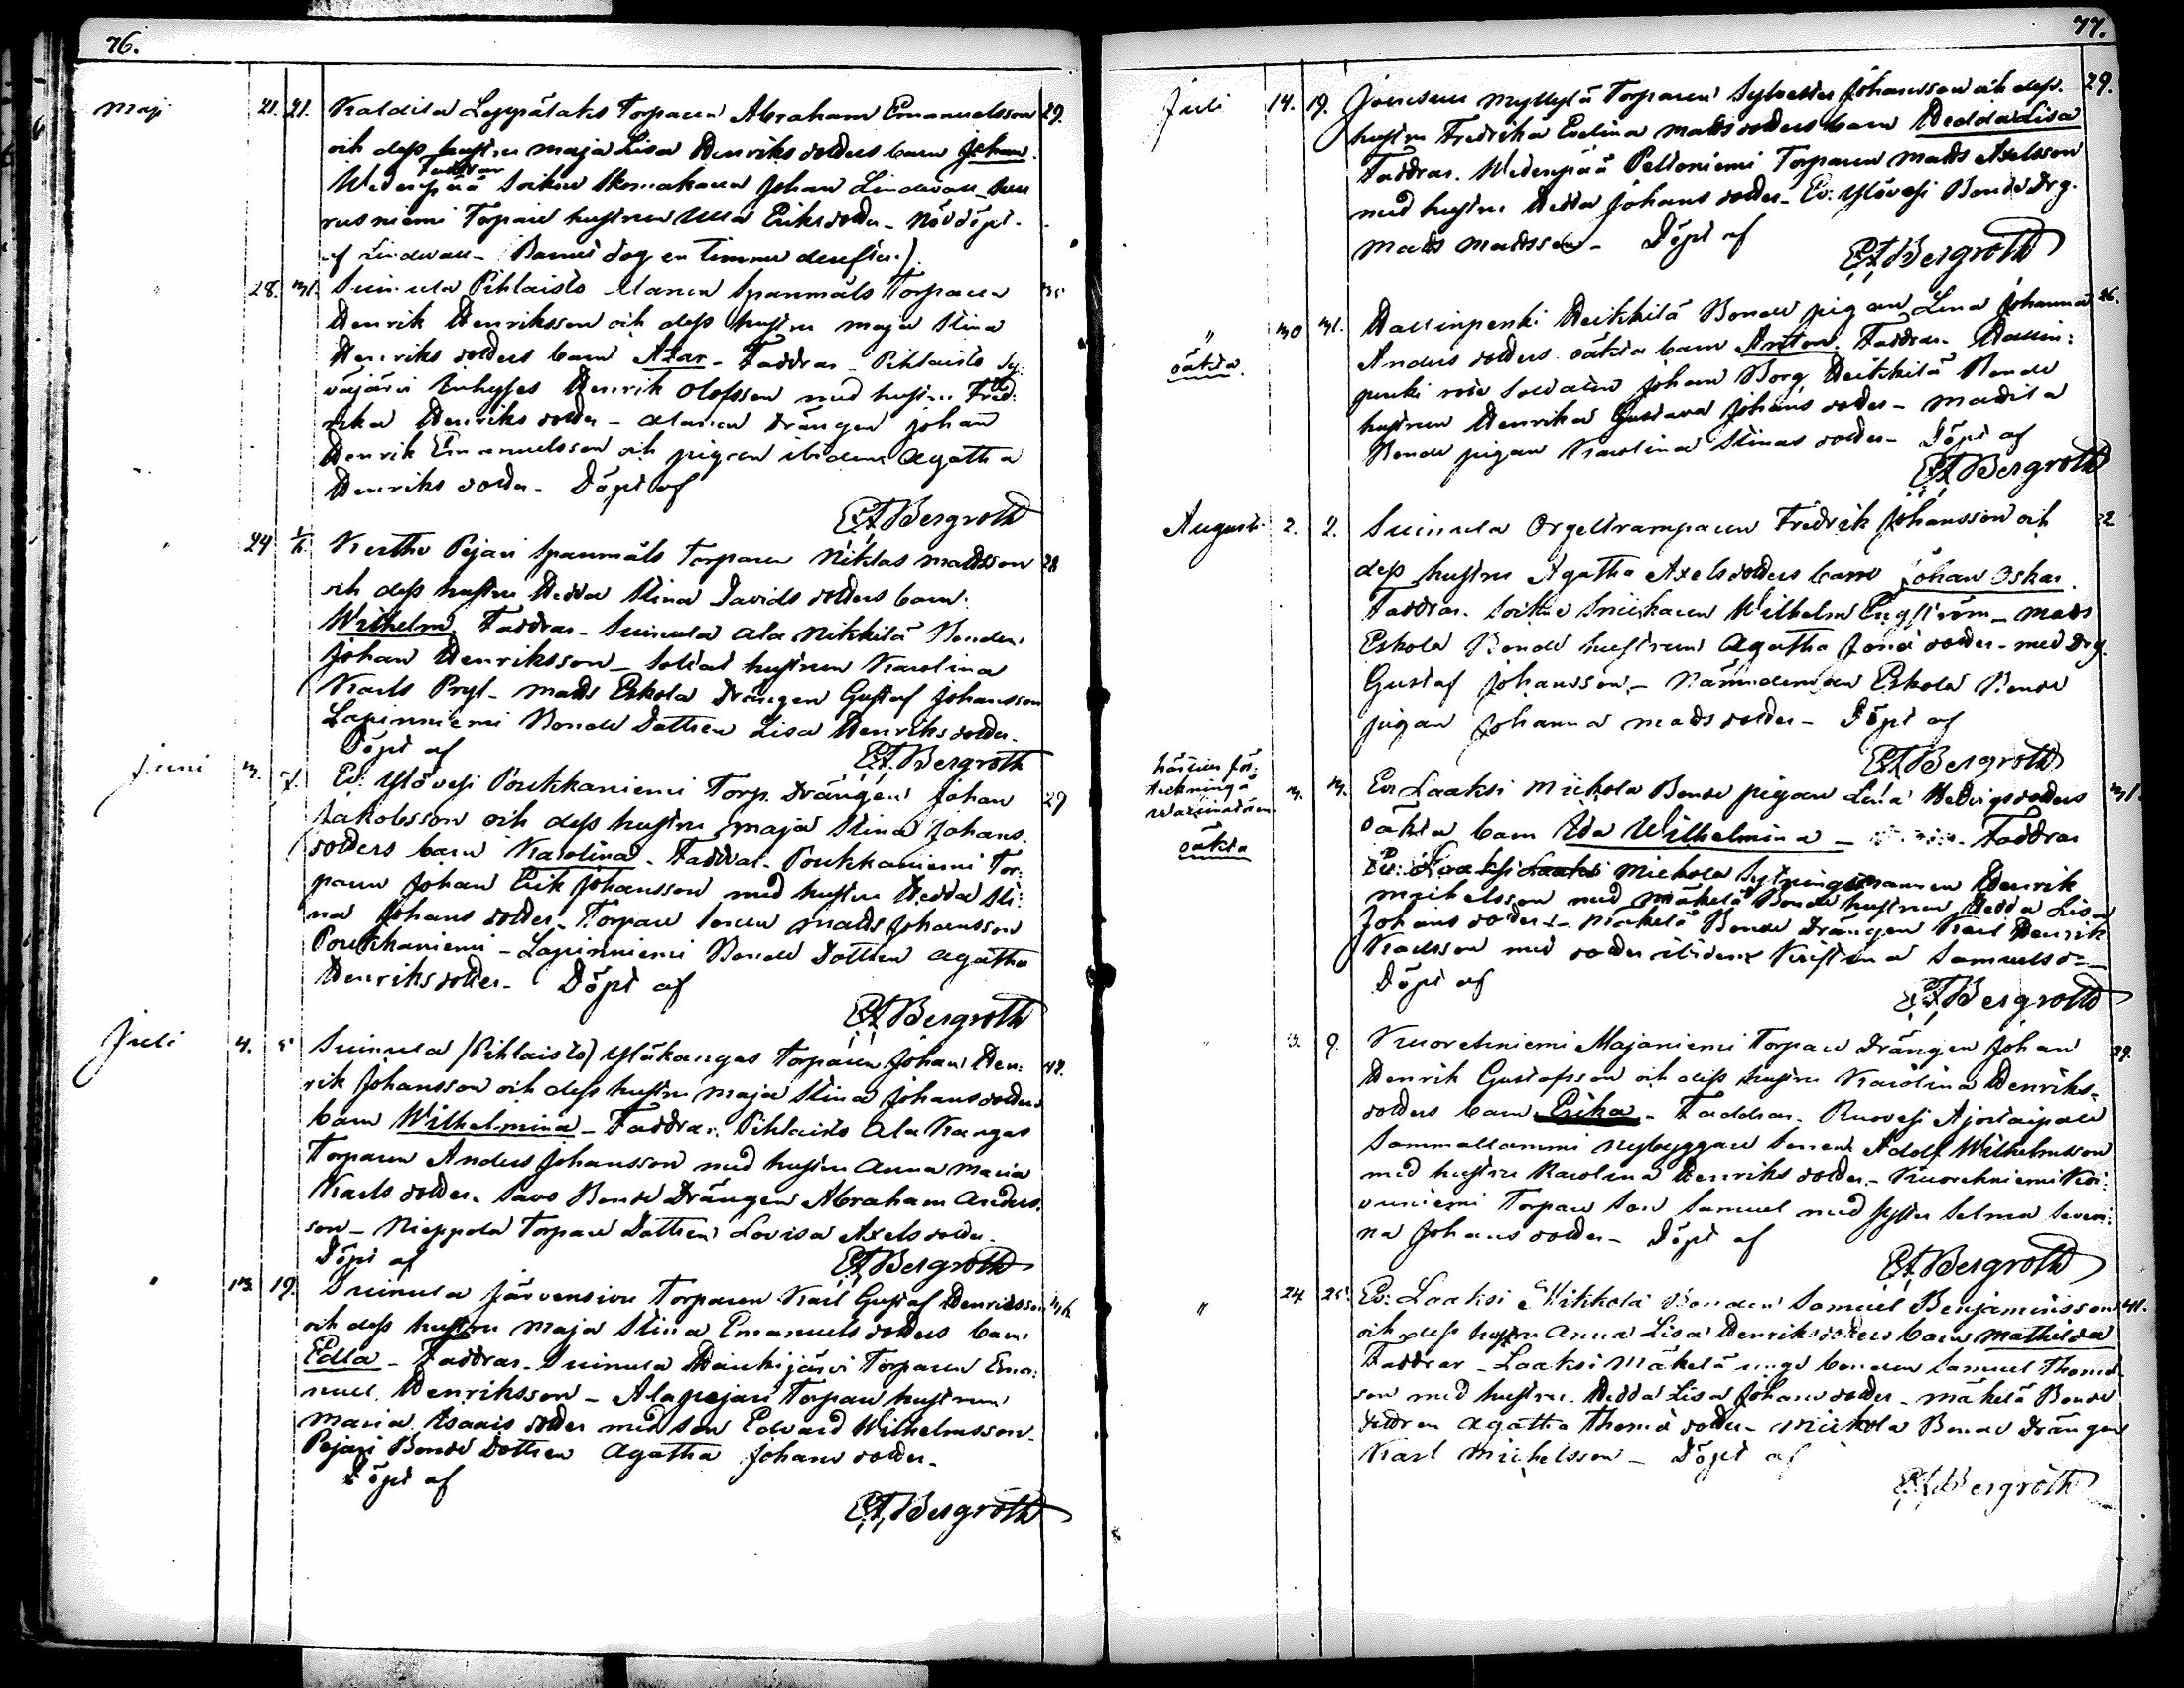 76.
Maji 21. 21. Kaldila Leppälaks Torparen Abraham Emanuelsson 29.
och dess hustru Maja Lisa Henriksdotters barn Johan.
Faddrar
Wedenpää Sockne Skomakaren Johan Lindwall
rusniemi Torpare hustrun Ulla Eriksdotter - Nöddöpt.
af Lindwall - Barnet dog en timma derefter.)
28. 31. Suinula Pihlaisto Spanmåls Torparen 35
Henrik Henriksson och dess hustru Maja Stina
Henriks dotters barn - Faddrar - Pihlaisto Sy-
väjärvi Inhyses Henrik Olofsson med hustru Fred-
rika Henriks dotter - Alanen Drängen Johan
Henrik Emanuelsson och pigan ibidem Agatha
Henriks dotter - Döpt af
E A Bergroth
24 1/6 Kertte Pejari Spanmåls Torparen Niklas Mattsson 28
och dess hustru Hedda Stina Davids dotters barn
Wilhelm. Faddrar - Suinula Ala Mikkilä Bonden
Johan Henriksson - Soldat hustrun Karolina
Karls Pryl - Matts Eskola Drängen Gustaf Johansson
Lapinniemi Bonde Dottren Lisa Henriksdotter.
Döpt af
E A Bergroth
Juni 3. 7. Ev: Ylövesi Poukkaniemi Torp. Drängen Johan 29
Jakobsson och dess hustru Maja Stina Johans
dotters barn Karolina - Faddrar - Poukkaniemi Tor-
paren Johan Erik Johansson med hustru Hedda Sti-
na Johans dotter - Torpare sonen Matts Johansson
Poukkaniemi - Lapinniemi Bonde Dottren Agatha
Henriksdotter - Döpt af
E A Bergroth
Juli 4. 5 Suinula (Pihlaisto) Yläkangas Torparen Johan Hen- 42.
rik Johansson och dess hustru Maja Stina Johansdotters
barn Wilhelmina - Faddrar. Pihlaisto Ala Kangas
Torparen Anders Johansson med hustru Anna Maria
Karls dotter. Savo Bonde Drängen Abraham Anders-
son - Nieppola Torpare Dottren Lovisa Axelsdotter.
Döpt af
E A Bergroth
" 13. 19. Suinula Järvensivu Torparen Karl Gustaf Henriksson
och dess hustru Maja Stina Emanuels dotters barn
Edla - Faddrar - Suinula Haukijärvi Torparen Ema-
nuel Henriksson - Alapejari Torpare hustrun
Maria Isaaks dotter med son Edvard Wilhelmsson -
Pejari Bonde Dottren Agatha Johans dotter -
Döpt af
E A Bergroth
77.
Juli 14. 19. Myllylä Torparen Sylvester Johansson och dess 29.
hustru Fredrika Evelina Mattsdotters barn Hedda Lisa
Faddrar. Wedenpää Peltoniemi Torparen Matts Axelsson
med hustru Hedda Johans dotter - Ev: Ylövesi Bonde Drg.
Matts Mattsson - Döpt af
E A Bergroth
" 30 31. Hallinpenki Heikkilä Bonde pigan Lena Johanna 26.
oäkta Anders dotters oäkta barn Anton. Faddrar. Hallin-
penki rote Soldaten Johan Borg, Heikkilä Bonde
hustrun Henrika Gustava Johans dotter - Mattila
Bonde pigan Karolina Stinas dotter - Döpt af
E A Bergroth
Augusti 2. 2. Suinula Orgeltramparen Fredrik Johansson och 22
dess hustru Agatha Axelsdotters barn Johan Oskar.
Faddrar. Sockne Snickaren Wilhelm Engström - Matts
Eskola Bonde hustrun Agatha dotter - med Drg.
Gustaf Johansson - Nämndeman Eskola Bonde
pigan Johanna Mattsdotter - Döpt af
E A Bergroth
oäkta 3. 3. Ev: Laaksi Mickola Bonde pigan Lena Hedvigsdotters 31.
oäkta barn Ida Wilhelmina - Faddrar
Ev: Laaksi Laaksi Mickola Sytningsmannen Henrik
Michelsson med Mäkelä Bonde hustrun Hedda Lisa
Johans dotter - Mäkelä Bonde Drängen Karl Henrik
Karlsson med dotter ibidem Kristina Samuelsd:
Döpt af
E A Bergroth
" 3. 9. Kuorehniemi Majaniemi Torpare Drängen Johan 29.
Henrik Gustafsson och dess hustru Karolina Henriks-
dotters barn Erika - Faddrar. Ruovesi Ajostaipale
Sammallammi Nybyggare Sonen Adolf Wilhelmsson
med hustru Karolina Henriks dotter - Kuorehniemi Koi-
vuniemi Torpare Son Samuel med syster Selma Severi-
na Johans dotter - Döpt af
E A Bergroth
" 24 25. Ev: Laaksi Mikkola Bonden Samuel Benjaminsson 41.
och dess hustru Anna Lisa Henriksdotters barn Mathilda
Faddrar - Laaksi Mäkelä unge bonden Samuel Thomas-
son med hustru Hedda Lisa Johans dotter - Mäkelä Bonde
dottren Agatha Thomæ dotter - Mickola Bonde Drängen
Karl Michelsson - Döpt af
E A Bergroth